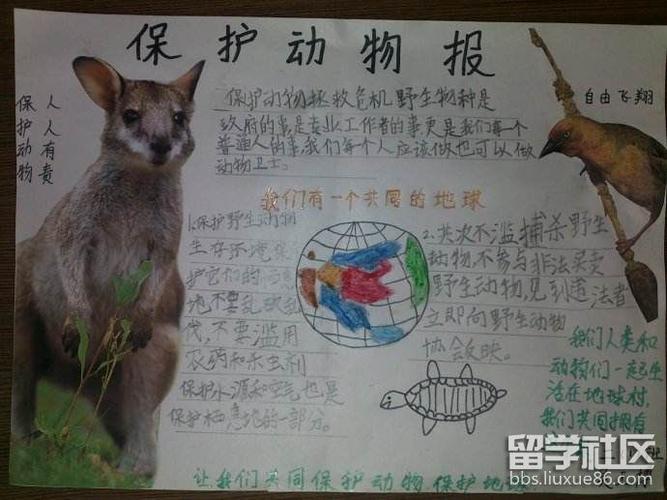 保护动物报
人人有责
保护动物
自由飞翔
保护动物拯救危机野生物种是
政府的事是专业工作者的事更是我们每一个
普通人的事我们每个人应该做也可以做
动物卫士。
我们有一个共同的地球
1.保护野生动物
生存环境保
护它们的栖息
地不要乱砍乱
伐,不要滥用
农药和杀虫剂
保护水源和空气也是
保护栖息地的一部分。
2.共决不滥捕杀野生
动物,不参与非法买卖
野生动物,见到违法者
立即向野生动物
协会反映。
我们人类和
动物们一起生
活在地球村,
我们共同拥有
让我们共同保护动物保护地球
留学社区
bbs.liuxue86.com